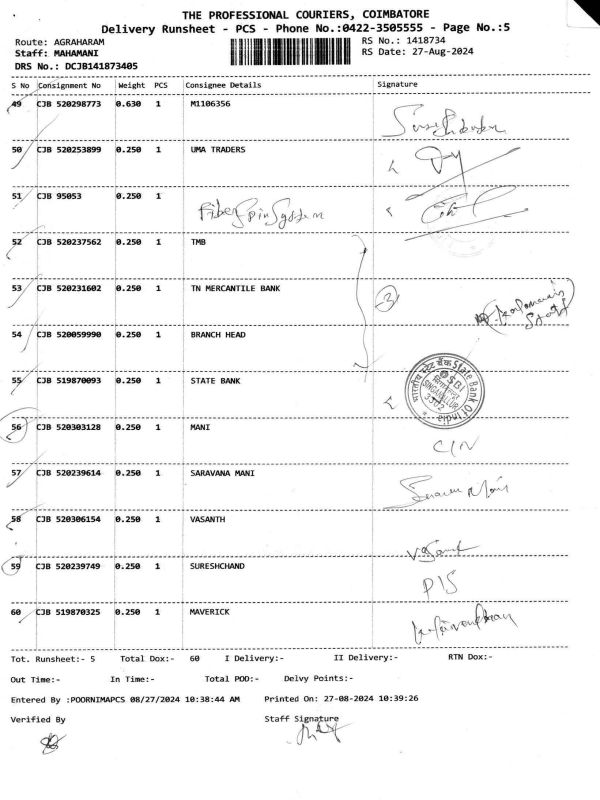 THE PROFESSIONAL COURIERS, COIMBATORE
Delivery Runsheet - PCS - Phone No.:0422-3505555 - Page No.:5
Route: AGRAHARAM RS No.: 1418734
Staff: MAHAMANI RS Date: 27-Aug-2024
DRS No.: DCJB141873405
S No Consignment No Weight PCS Consignee Details Signature
49 CJB 520298773 0.630 1 M1106356
50 CJB 520253899 0.250 1 UMA TRADERS
51 CJB 95053 0.250 1
Fiber Spin System
52 CJB 520237562 0.250 1 TMB
53 CJB 520231602 0.250 1 TN MERCANTILE BANK
3
54 CJB 520059990 0.250 1 BRANCH HEAD
55 CJB 519870093 0.250 1 STATE BANK
भारतीय स्टेट बैंक State Bank Of India
SBI
SINGANALLUR
56 CJB 520303128 0.250 1 MANI
C/N
57 CJB 520239614 0.250 1 SARAVANA MANI
58 CJB 520306154 0.250 1 VASANTH
59 CJB 520239749 0.250 1 SURESHCHAND
P/S
60 CJB 519870325 0.250 1 MAVERICK
Tot. Runsheet:- 5 Total Dox:- 60 I Delivery:- II Delivery:- RTN Dox:-
Out Time:- In Time:- Total POD:- Delvy Points:-
Entered By :POORNIMAPCS 08/27/2024 10:38:44 AM Printed On: 27-08-2024 10:39:26
Verified By Staff Signature